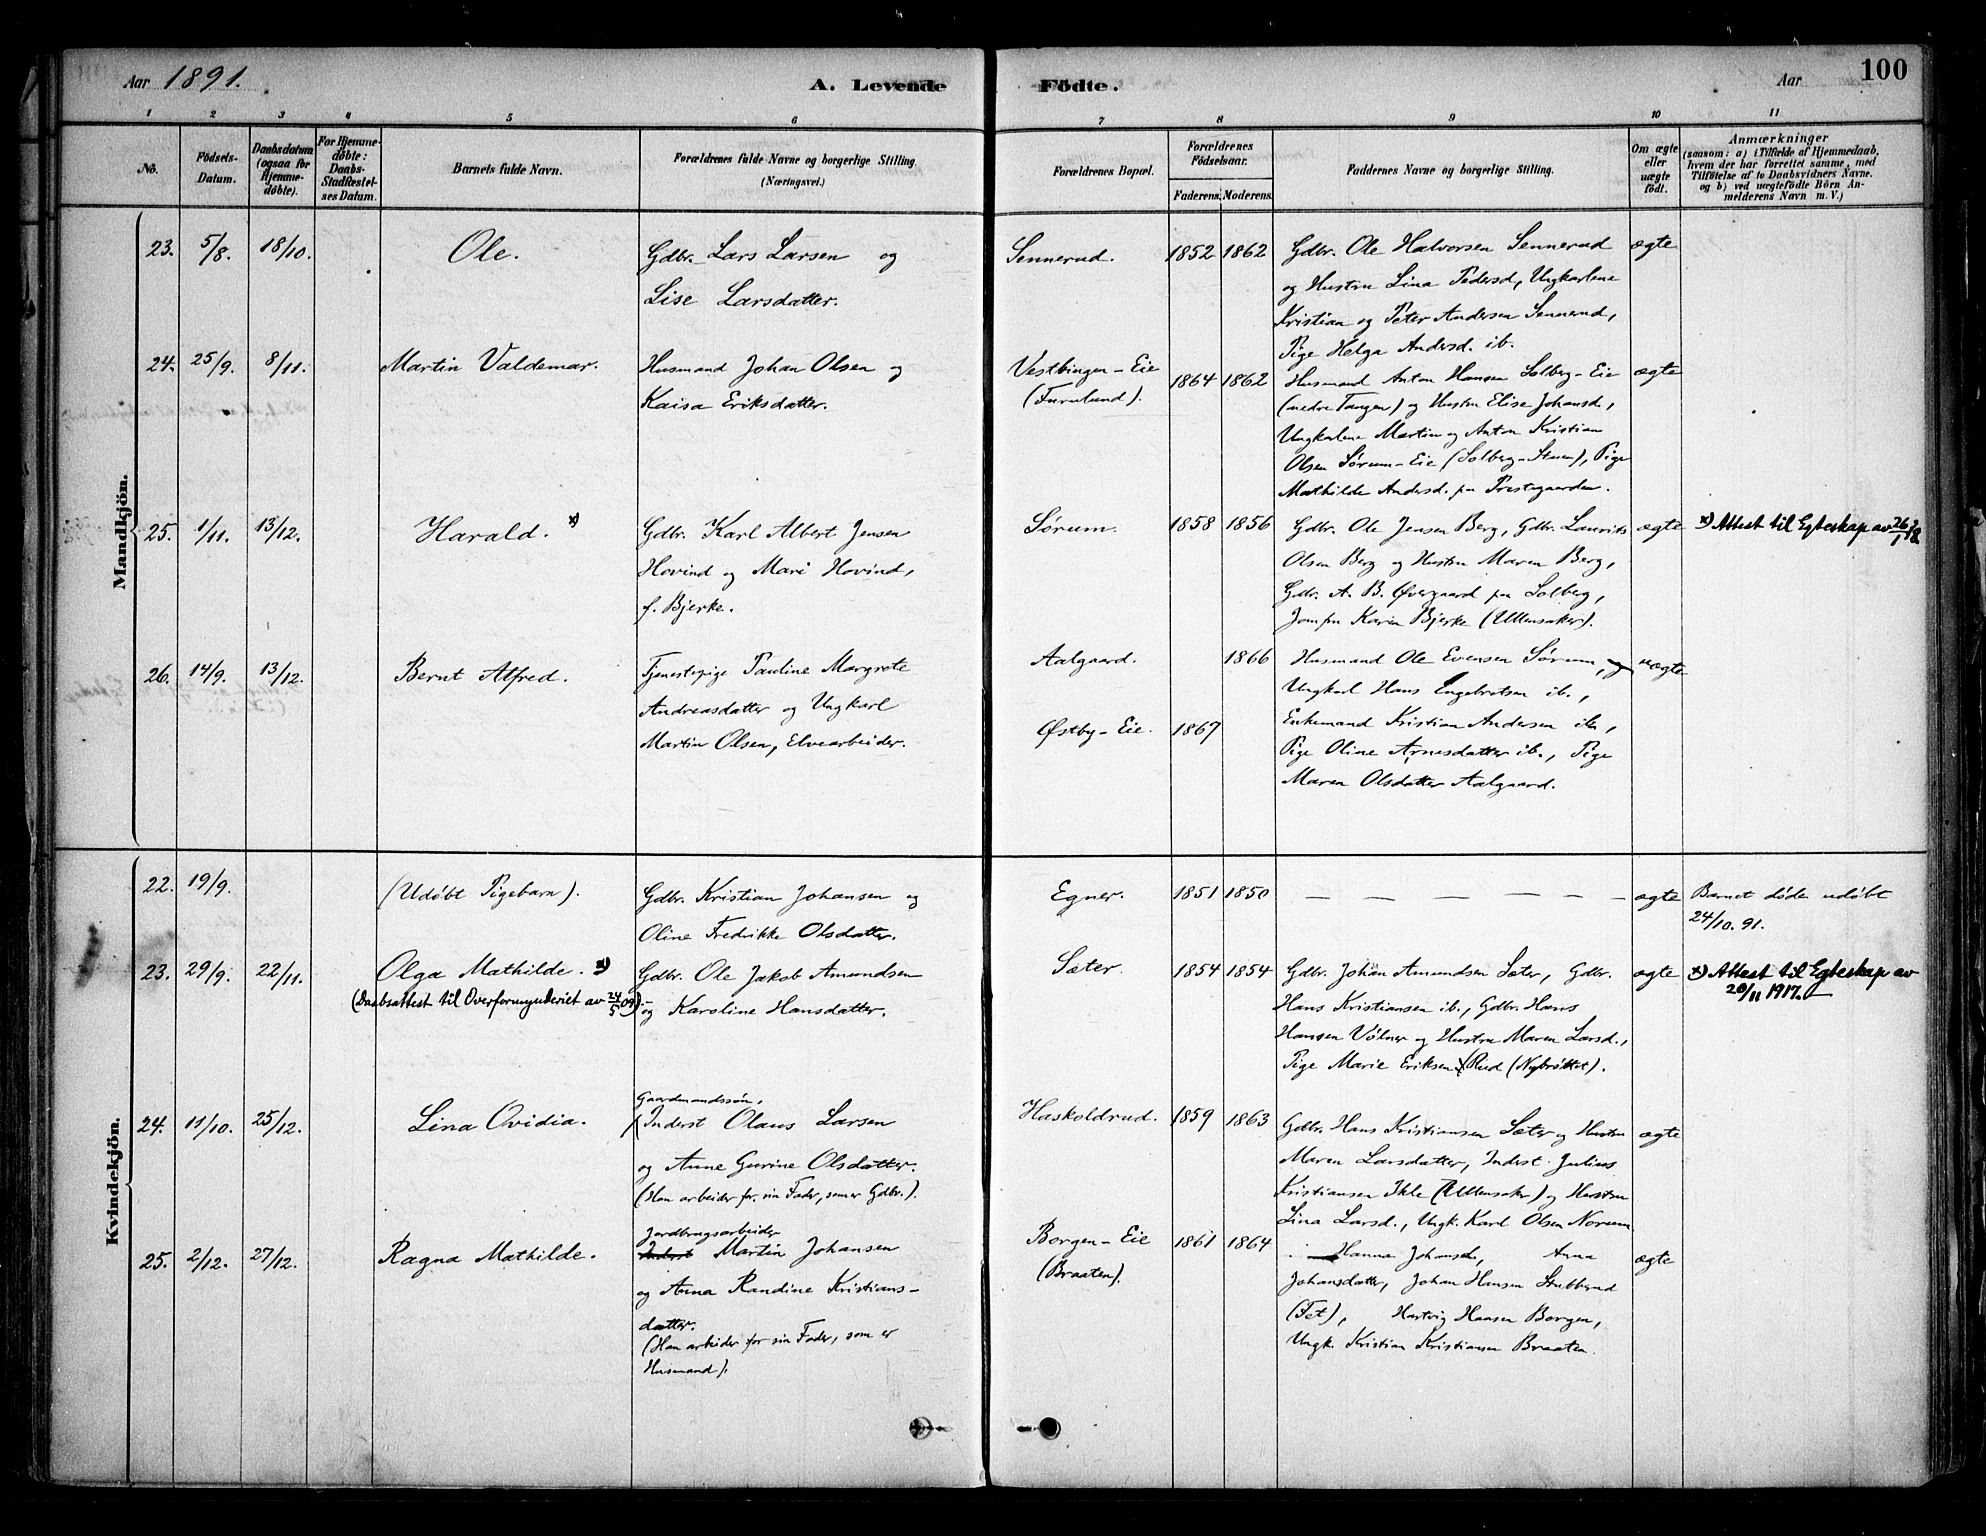 Aar 1891.
A. Levende
Födte.
Aar
100
1 2 3 4 5 6 7 8 9 10 11
No.
Födsels-
Datum.
Daabsdatum
(ogsaa for
Hjemme-
döbte).
For Hjemme-
döbte:
Daabs-
Stadfæstel-
ses Datum.
Barnets fulde Navn.
Forældrenes fulde Navne og borgerlige Stilling.
(Næringsvei.)
Forældrenes Bopæl.
Forældrenes
Födselsaar.
Faderens. Moderens.
Faddernes Navne og borgerlige Stilling.
Om ægte
eller
uægte
födt.
Anmærkninger
(saasom: a) i Tilfælde af Hjemmedaab,
hvem der har forrettet samme, med
Tilföielse af to Daabsvidners Navne.
og b) ved uægtefödte Börn An-
melderens Navn m. V.)
Mandkjön.
23. 5/8. 18/10. Ole.
Gdbr. Lars Larsen og
Lise Larsdatter.
Sennerud. 1852 1862
Gdbr. Ole Halvorsen Sennerud
og Hustru Lina Pedersd, Ungkarlene
Kristian og Peter Andersen Sennerud,
Pige Helga Andersd. ib.
ægte
24. 25/9. 8/11. Martin Valdemar.
Husmand Johan Olsen og
Kaisa Eriksdatter.
Vestbingen-Eie
(Furulund).
1864 1862
Husmand Anton Hansen Solberg-Eie
(nedre Tangen) og Hustru Elise Johansd.,
Ungkarlene Martin og Anton Kristian
Olsen Sørum-Eie (Solberg-Stuen), Pige
Mathilde Andersd. paa Prestegaarden.
ægte
25. 1/11. 13/12. Harald. x)
Gdbr. Karl Albert Jensen
Hovind og Mari Hovind,
f. Bjerke.
Sørum. 1858 1856
Gdbr. Ole Jensen Berg, Gdbr. Laurits
Olsen Berg og Hustru Maren Berg,
Gdbr. A. B. Øvergaard paa Solberg,
Jomfru Karen Bjerke (Ullensaker).
ægte
x) Attest til Egteskap av 26/1
26. 14/9. 13/12. Bernt Alfred.
Tjenestepige Pauline Margrete
Andreasdatter og Ungkarl
Martin Olsen, Elvearbeider.
Aalgaard. 1866
Østby-Eie. 1867
Husmand Ole Evensen Sørum,
Ungkarl Hans Engebretsen ib.,
Enkemand Kristian Andersen ib.,
Pige Oline Arnesdatter ib., Pige
Maren Olsdatter Aalgaard.
uægte
Kvindekjön.
22. 19/9. (Udøbt Pigebarn).
Gdbr. Kristian Johansen og
Oline Fredrikke Olsdatter.
Egner. 1851 1850
— — — — — —
ægte
Barnet døde udøbt
24/10. 91.
23. 29/9. 22/11. Olga Mathilde. x)
(Daabsattest til Overformynderiet av 24/5 09).
Gdbr. Ole Jakob Amundsen
og Karoline Hansdatter.
Sæter. 1854 1854
Gdbr. Johan Amundsen Sæter, Gdbr.
Hans Kristiansen ib., Gdbr. Hans
Hansen Vølner og Hustru Maren Larsd.,
Pige Marie Eriksen Rud (Nybrottet).
ægte
x) Attest til Egteskap av
20/11 1917.
24. 11/10. 25/12. Lina Ovidia.
Gaardmandssøn,
(Inderst Olaus Larsen
og Anne Gurine Olsdatter.
(Han arbeider for sin Fader, som er Gdbr.).
Haskoldrud. 1859 1863
Gdbr. Hans Kristiansen Sæter og Hustru
Maren Larsdatter, Inderst Julius
Kristiansen Ihle (Ullensaker) og Hustru
Lina Larsd., Ungk. Karl Olsen Noreum
ægte
25. 2/12. 27/12. Ragna Mathilde.
Jordbrugsarbeider
Inderst Martin Johansen
og Anna Randine Kristians-
datter.
(Han arbeider for sin Fader, som er
Husmand).
Borgen-Eie
(Braaten).
1861 1864
Hanna Johansd., Anna
Johansdatter, Johan Hansen Stubberud
(Fet), Hartvig Hansen Borgen,
Ungk. Kristian Kristiansen Braaten.
ægte